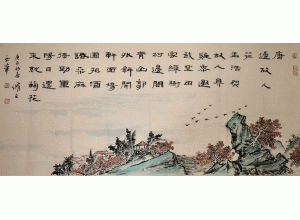 唐
過故人
莊
孟浩然
雞黍邀
我至田
家綠樹
村邊合
青山郭
外斜開
軒面場
圃把酒
話桑麻
待到重
陽日還
來就菊花